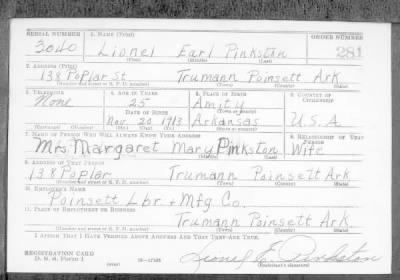 SERIAL NUMBER 1. NAME (Print) ORDER NUMBER
3040 Lionel Earl Pinkston 281
(First) (Middle) (Last)
2. ADDRESS (Print)
138 Poplar St Trumann Poinsett Ark
(Number and street or R. F. D. number) (Town) (County) (State)
3. TELEPHONE 4. AGE IN YEARS 5. PLACE OF BIRTH 6. COUNTRY OF CITIZENSHIP
None 25 Amity
DATE OF BIRTH (Town or county)
Nov 20 1913 Arkansas U.S.A
(Exchange) (Number) (Mo.) (Day) (Yr.) (State or country)
7. NAME OF PERSON WHO WILL ALWAYS KNOW YOUR ADDRESS 8. RELATIONSHIP OF THAT PERSON
Mrs Margaret Mary Pinkston Wife
(Mr., Mrs., Miss) (First) (Middle) (Last)
9. ADDRESS OF THAT PERSON
138 Poplar Trumann Poinsett Ark
(Number and street or R. F. D. number) (Town) (County) (State)
10. EMPLOYER'S NAME
Poinsett Lbr + Mfg Co.
11. PLACE OF EMPLOYMENT OR BUSINESS
Trumann Poinsett Ark.
(Number and street or R. F. D. number) (Town) (County) (State)
I AFFIRM THAT I HAVE VERIFIED ABOVE ANSWERS AND THAT THEY ARE TRUE.
REGISTRATION CARD
D. S. S. Form 1 (over) Lionel E. Pinkston
(Registrant's signature)